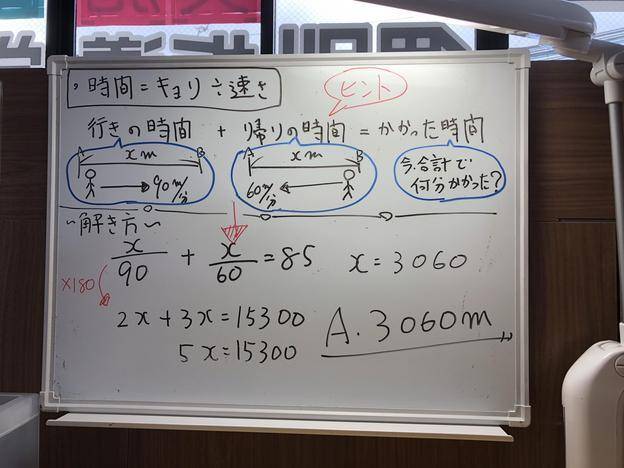 ・時間=キョリ÷速さ
ヒント
行きの時間 + 帰りの時間 = かかった時間
A x m B
90m/分
A x m B
60m/分
今、合計で
何分かかった?
〜解き方〜
x/90 + x/60 = 85
×180
2x+3x=15300
5x=15300
x=3060
A. 3060m